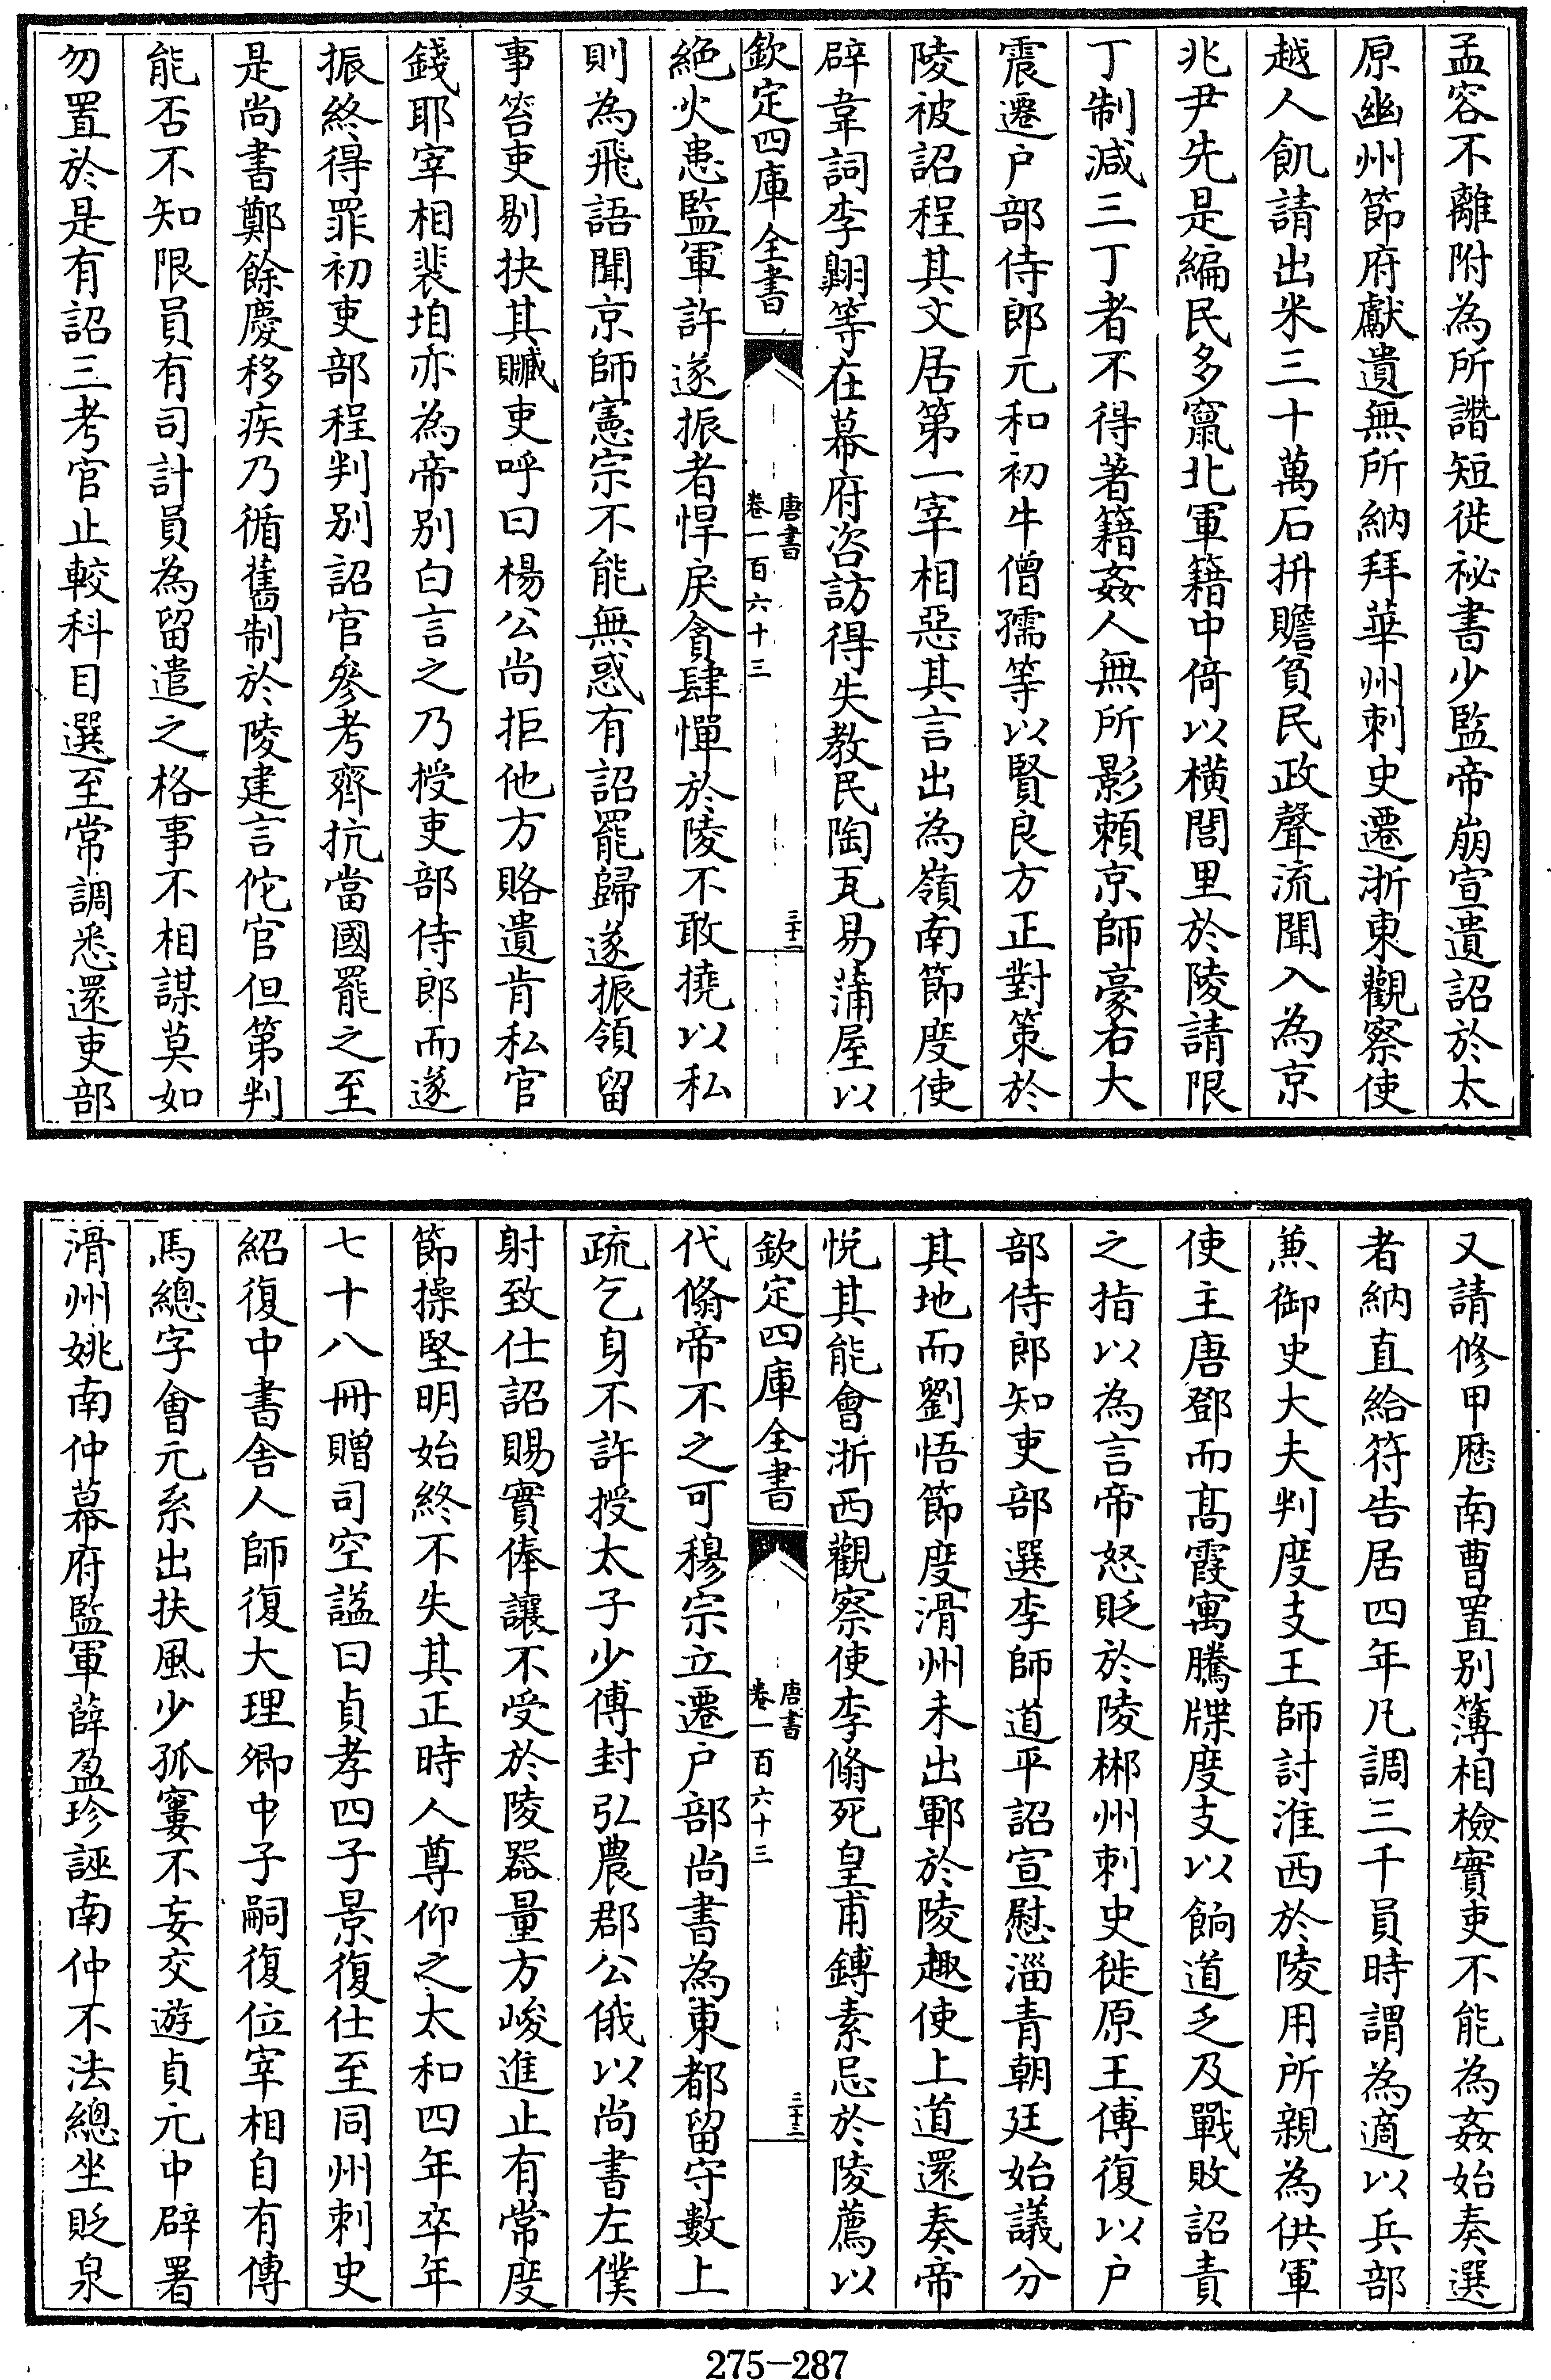 孟容不離附為所譖短徙祕書少監帝崩宣遺詔於太
原幽州節府獻遺無所納拜華州刺史遷浙東觀察使
越人飢請出米三十萬石拼贍貧民政聲流聞入為京
兆尹先是編民多竄北軍籍中倚以橫閭里於陵請限
丁制減三丁者不得著籍姦人無所影賴京師豪右大
震遷户部侍郎元和初牛僧孺等以賢良方正對策於
陵被詔程其文居第一宰相惡其言出為嶺南節度使
辟韋詞李翺等在幕府咨訪得失教民陶瓦易蒲屋以
欽定四庫全書
唐書
卷一百六十三
三十二
絶火患監軍許遂振者悍戾貪肆憚於陵不敢撓以私
則為飛語聞京師憲宗不能無惑有詔罷歸遂振領留
事笞吏剔抉其贓吏呼曰楊公尚拒他方賂遺肯私官
錢耶宰相裴垍亦為帝別白言之乃授吏部侍郎而遂
振終得罪初吏部程判別詔官參考齊抗當國罷之至
是尚書鄭餘慶移疾乃循舊制於陵建言佗官但第判
能否不知限員有司計員為留遣之格事不相謀莫如
勿置於是有詔三考官止較科目選至常調悉還吏部
又請修甲歴南曹置別簿相檢實吏不能為姦始奏選
者納直給符告居四年凡調三千員時謂為適以兵部
兼御史大夫判度支王師討淮西於陵用所親為供軍
使主唐鄧而高霞寓騰牒度支以餉道乏及戰敗詔責
之指以為言帝怒貶於陵郴州刺史徙原王傅復以户
部侍郎知吏部選李師道平詔宣慰淄青朝廷始議分
其地而劉悟節度滑州未出鄆於陵趣使上道還奏帝
悦其能會浙西觀察使李翛死皇甫鎛素忌於陵薦以
欽定四庫全書
唐書
卷一百六十三
三十三
代翛帝不之可穆宗立遷户部尚書為東都留守數上
疏乞身不許授太子少傅封弘農郡公俄以尚書左僕
射致仕詔賜實俸讓不受於陵器量方峻進止有常度
節操堅明始終不失其正時人尊仰之太和四年卒年
七十八冊贈司空謚曰貞孝四子景復仕至同州刺史
紹復中書舍人師復大理卿中子嗣復位宰相自有傳
馬總字會元系出扶風少孤窶不妄交遊貞元中辟署
滑州姚南仲幕府監軍薛盈珍誣南仲不法總坐貶泉
275-287